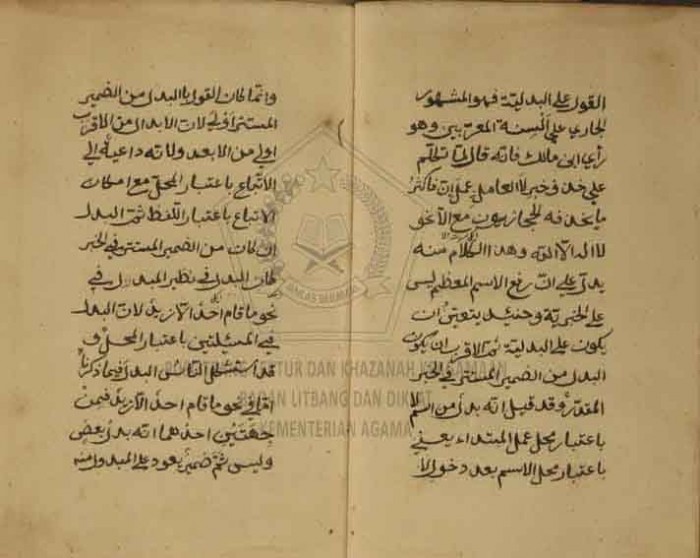 القول على البدلية فهو المشهور
الجاري على ألسنة المعربين وهو
رأي ابن مالك فانه قال لما تكلم
على حذف خبر لا العامل عمل ان فاكثر
ما يحذفه الحجازيون مع الا نحو
لا اله الا الله وهذا الكلام منه
يدل على ان رفع الاسم المعظم ليس
على الخبرية وحينئذ يتعين ان
يكون على البدلية ثم الاقرب ان يكون
البدل من الضمير المستتر في الخبر
المقدر وقد قيل انه بدل من اسم لا
باعتبار محل عمل المبتداء يعني
باعتبار محل الاسم بعد دخول لا
وانما كان القول بالبدل من الضمير
المستتر أولى لان الابدال من الاقرب
اولى من الابعد ولانه داعية الى
الاتباع باعتبار المحل مع امكان
الاتباع باعتبار اللفظ ثم البدل
ان كان من الضمير المستتر في الخبر
كان البدل في نظير المبدل في
نحو ما قام احد الا زيد لان البدل
في المسئلتين باعتبار المحل و
قد استشكل الناس البدل فيما ذكرنا
اما في نحو ما قام احد الا زيد فمن
جهتين احدهما انه بدل بعض
وليس ثم ضمير يعود على المبدل منه
PUSLITBANG LEKTUR DAN KHAZANAH KEAGAMAAN
BADAN LITBANG DAN DIKLAT
KEMENTERIAN AGAMA
IKHLAS BERAMAL